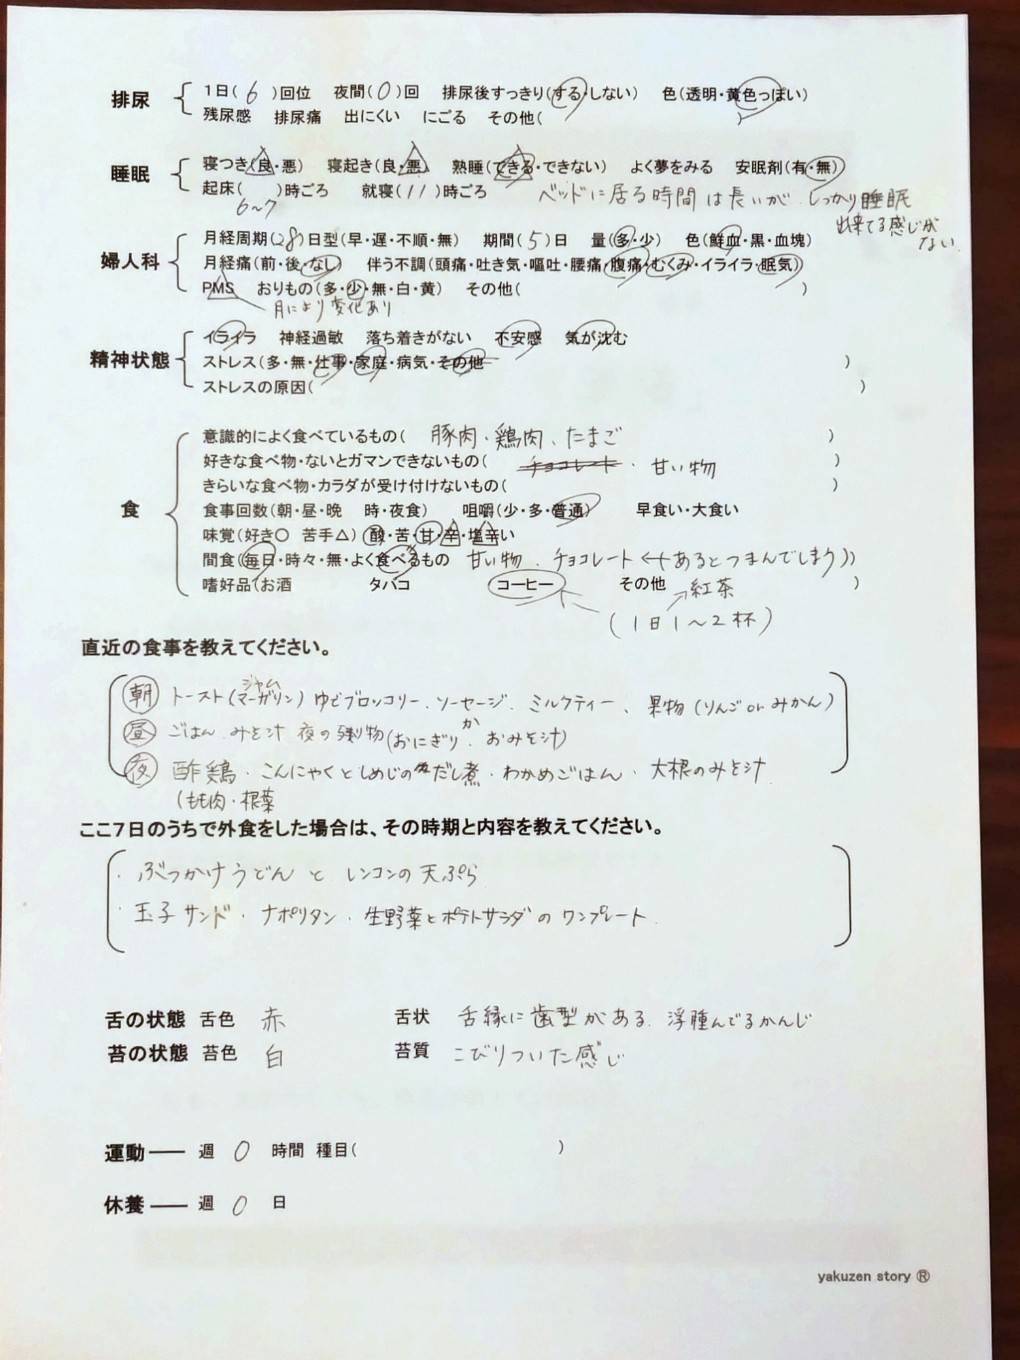 排尿 1日( 6 )回位 夜間( 0 )回 排尿後すっきり(する・しない) 色(透明・黄色っぽい)
残尿感 排尿痛 出にくい にごる その他( )
睡眠 寝つき(良・悪) 寝起き(良・悪) 熟睡(できる・できない) よく夢をみる 安眠剤(有・無)
起床( )時ごろ 就寝( 11 )時ごろ ベッドに居る時間は長いが、しっかり睡眠
6〜7 出来てる感じがない。
婦人科 月経周期( 28 )日型(早・遅・不順・無) 期間( 5 )日 量(多・少) 色(鮮血・黒・血塊)
月経痛(前・後・なし) 伴う不調(頭痛・吐き気・嘔吐・腰痛・腹痛・むくみ・イライラ・眠気)
PMS おりもの(多・少・無・白・黄) その他( )
月により変化あり
精神状態 イライラ 神経過敏 落ち着きがない 不安感 気が沈む
ストレス(多・無・仕事・家庭・病気・その他 )
ストレスの原因( )
食 意識的によく食べているもの( 豚肉・鶏肉、たまご )
好きな食べ物・ないとガマンできないもの( チョコレート・甘い物 )
きらいな食べ物・カラダが受け付けないもの( )
食事回数(朝・昼・晩 時・夜食) 咀嚼(少・多・普通) 早食い・大食い
味覚(好き○ 苦手△) 酸・苦・甘・辛・塩辛い
間食(毎日・時々・無・よく食べるもの 甘い物、チョコレート ←(あるとつまんでしまう))
嗜好品(お酒 タバコ コーヒー その他 紅茶 )
(1日1〜2杯)
直近の食事を教えてください。
ジャム
朝 トースト(マーガリン) ゆでブロッコリー、ソーセージ、ミルクティー、果物(りんごorみかん)
昼 ごはん、みそ汁 夜の残り物(おにぎりか、おみそ汁)
夜 酢鶏・こんにゃくとしめじのだし煮・わかめごはん・大根のみそ汁
(もも肉・根菜
ここ7日のうちで外食をした場合は、その時期と内容を教えてください。
・ぶっかけうどんと レンコンの天ぷら
・玉子サンド・ナポリタン・生野菜とポテトサラダのワンプレート
舌の状態 舌色 赤 舌状 舌縁に歯型がある、浮腫んでるかんじ
苔の状態 苔色 白 苔質 こびりついた感じ
運動 ―― 週 0 時間 種目( )
休養 ―― 週 0 日
yakuzen story ®